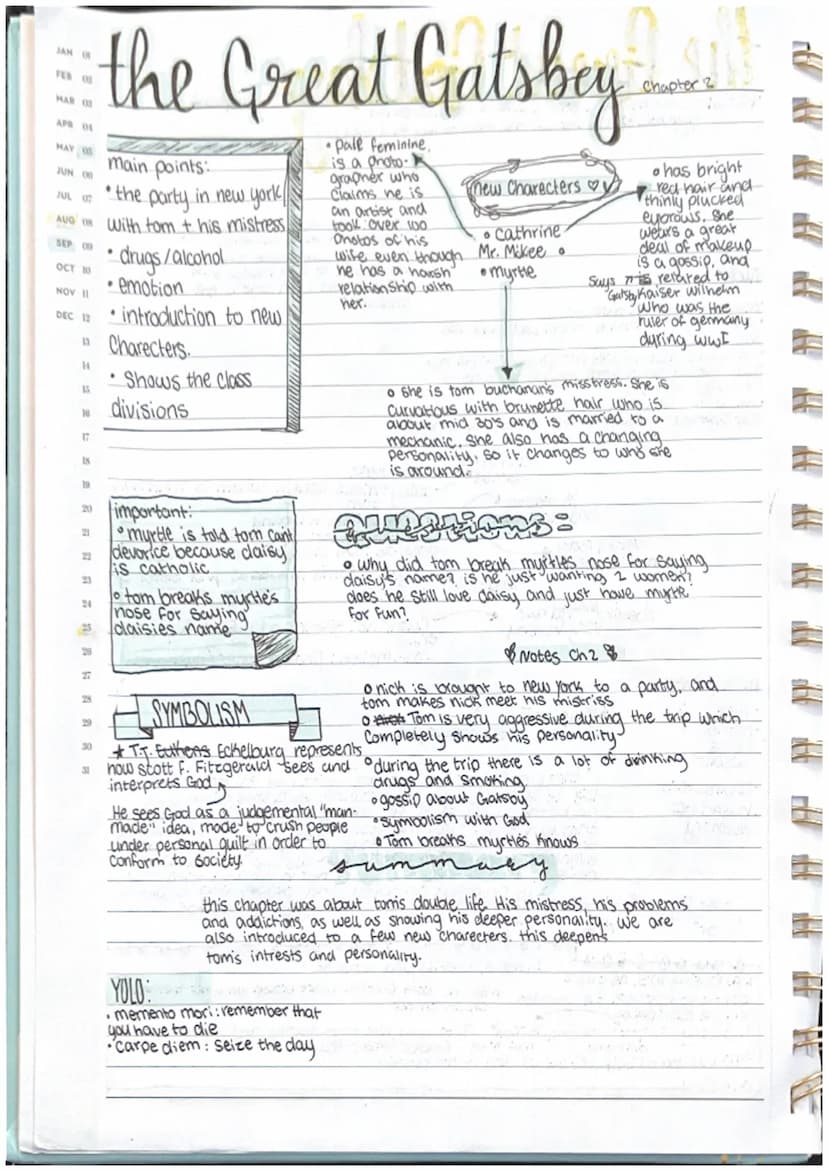 the Great Gatsbey
chapter 2
JAN 01
FEB 02
MAR 03
APR 04
MAY 05
JUN 06
JUL 07
AUG 08
SEP 09
OCT 10
NOV 11
DEC 12
13
14
15
16
17
18
19
20
21
22
23
24
25
26
27
28
29
30
31
main points:
• the party in new york
with tom + his mistress
• drugs/alcohol
• emotion
• introduction to new
Charecters.
• Shows the class
divisions
• pale feminine,
is a photo-
grapher who
claims he is
an artist and
took over 100
photos of his
wife even though
he has a harsh
relationship with
her.
new Charecters ♡
• cathrine
Mr. Mckee •
• myrtle
• has bright
red hair and
thinly plucked
eyebrows. She
wears a great
deal of makeup
is a gossip, and
Says is related to
"Gatsby Kaiser Wilhelm
who was the
ruler of germany
during WWI
• she is tom buchanan's misstress. She is
curvatious with brunette hair who is
about mid 30's and is married to a
mechanic. She also has a changing
personality. so it changes to who she
is around.
important:
• myrtle is told tom cant
devorice because daisy
is catholic
• tom breaks myrtle's
nose for saying
daisies name
Questions:
• why did tom break myrtles nose for saying
daisy's name? is he just wanting 2 women?
does he still love daisy and just have myrtle
for fun?
Notes Ch 2
• nick is brought to new york to a party, and
tom makes nick meet his mistriss
• Tom is very aggressive during the trip which
completely shows his personality
• during the trip there is a lot of drinking
drugs and smoking
• gossip about Gatsby
• symbolism with God
• Tom breaks myrtles knows
SYMBOLISM
★ T.J. Eckelburg represents
how scott F. Fitzgerald sees and
interprets God
He sees God as a judgemental "man-
made" idea, made to crush people
under personal guilt in order to
conform to society.
summary
this chapter was about tom's double life. His mistress, his problems
and addictions, as well as showing his deeper personality. we are
also introduced to a few new charecters. this deepens
tom's intrests and personality.
YOLO:
• memento mori: remember that
you have to die
• carpe diem: seize the day